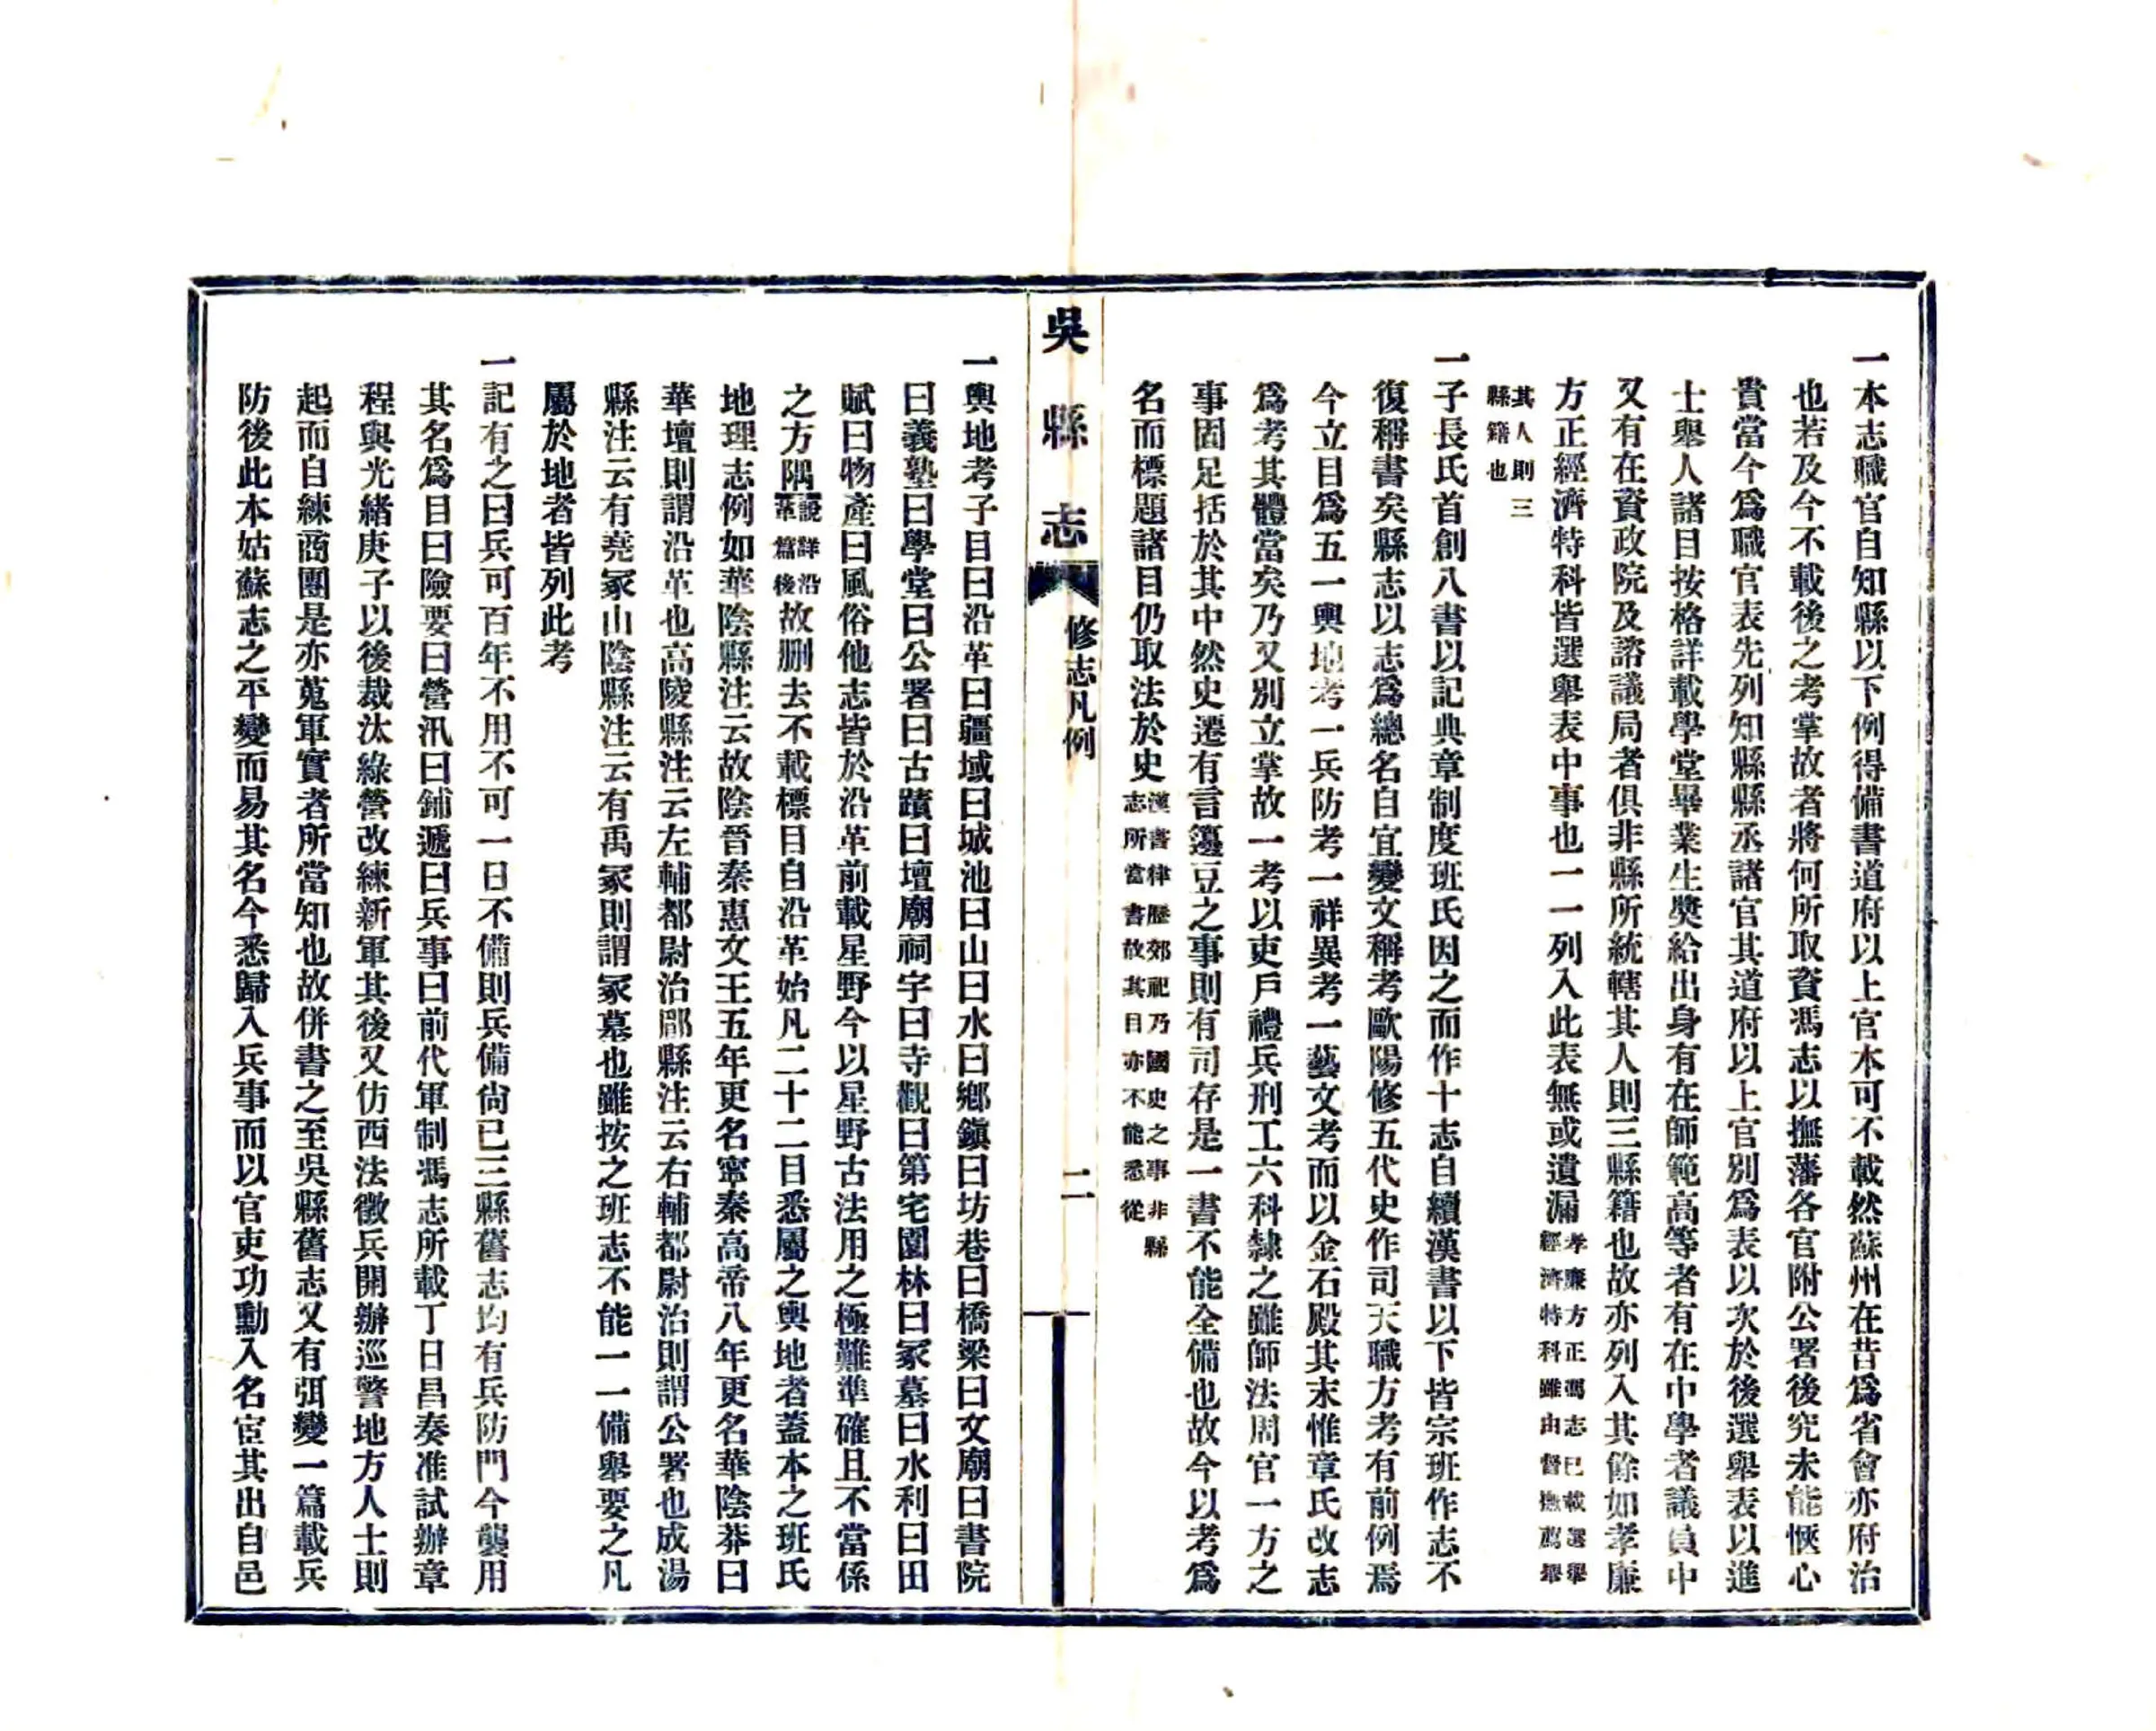 一本志職官自知縣以下例得備書道府以上官本可不載然蘇州在昔爲省會亦府治
也若及今不載後之考掌故者將何所取資馮志以撫藩各官附公署後究未能愜心
貴當今爲職官表先列知縣縣丞諸官其道府以上官別爲表以次於後選舉表以進
士舉人諸目按格詳載學堂畢業生獎給出身有在師範高等者有在中學者議員中
又有在資政院及諮議局者俱非縣所統轄其人則三縣籍也故亦列入其餘如孝廉
方正經濟特科皆選舉表中事也一一列入此表無或遺漏孝廉方正馮志已載選舉經濟特科雖由督撫薦舉
其人則三縣籍也
一子長氏首創八書以記典章制度班氏因之而作十志自續漢書以下皆宗班作志不
復稱書矣縣志以志爲總名自宜變文稱考歐陽修五代史作司天職方考有前例焉
今立目爲五一輿地考一兵防考一祥異考一藝文考而以金石殿其末惟章氏改志
爲考其體當矣乃又別立掌故一考以吏戶禮兵刑工六科隸之雖師法周官一方之
事固足括於其中然史遷有言籩豆之事則有司存是一書不能全備也故今以考爲
名而標題諸目仍取法於史漢書律歷郊祀乃國史之事非縣志所當書故其目亦不能悉從
吳縣志
修志凡例
二
一輿地考子目曰沿革曰疆域曰城池曰山曰水曰鄉鎮曰坊巷曰橋梁曰文廟曰書院
曰義塾曰學堂曰公署曰古蹟曰壇廟祠宇曰寺觀曰第宅園林曰冢墓曰水利曰田
賦曰物產曰風俗他志皆於沿革前載星野今以星野古法用之極難準確且不當係
之方隅說詳沿革篇後故刪去不載標目自沿革始凡二十二目悉屬之輿地者蓋本之班氏
地理志例如華陰縣注云故陰晉秦惠文王五年更名寧秦高帝八年更名華陰莽曰
華壇則謂沿革也高陵縣注云左輔都尉治郿縣注云右輔都尉治則謂公署也成湯
縣注云有堯冢山陰縣注云有禹冢則謂冢墓也雖按之班志不能一一備舉要之凡
屬於地者皆列此考
一記有之曰兵可百年不用不可一日不備則兵備尙已三縣舊志均有兵防門今襲用
其名爲目曰險要曰營汛曰鋪遞曰兵事曰前代軍制馮志所載丁日昌奏准試辦章
程與光緒庚子以後裁汰綠營改練新軍其後又仿西法徵兵開辦巡警地方人士則
起而自練商團是亦蒐軍實者所當知也故併書之至吳縣舊志又有弭變一篇載兵
防後此本姑蘇志之平變而易其名今悉歸入兵事而以官吏功勳入名宦其出自邑